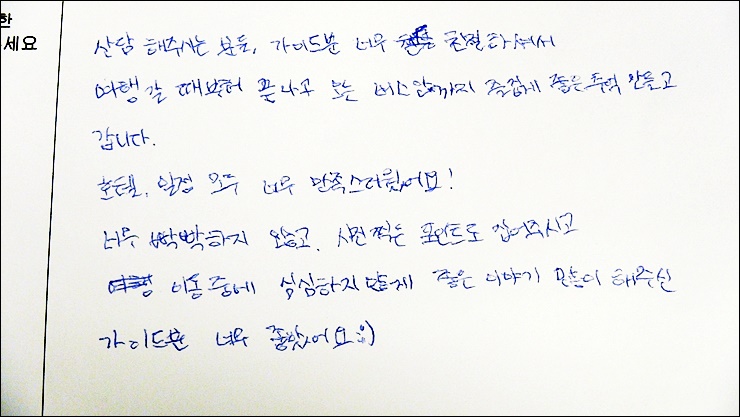 한
세요
상담 해주시는 분들, 가이드분 너무 친절하셔서
여행 갈 때부터 끝나고 오는 버스안까지 즐겁게 좋은추억 만들고
갑니다.
호텔, 일정 모두 너무 만족스러웠어요!
너무 빡빡하지 않고, 사진 찍는 포인트도 집어주시고
이동 중에 심심하지않게 좋은 이야기 많이 해주신
가이드분 너무 좋았어요:)